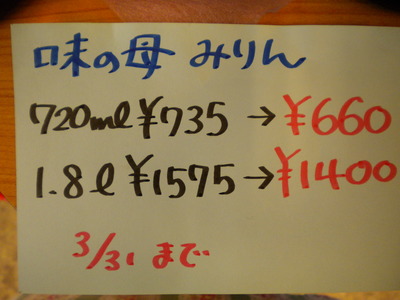 味の母 みりん
720ml ¥735 → ¥660
1.8l ¥1575 → ¥1400
3/31 まで